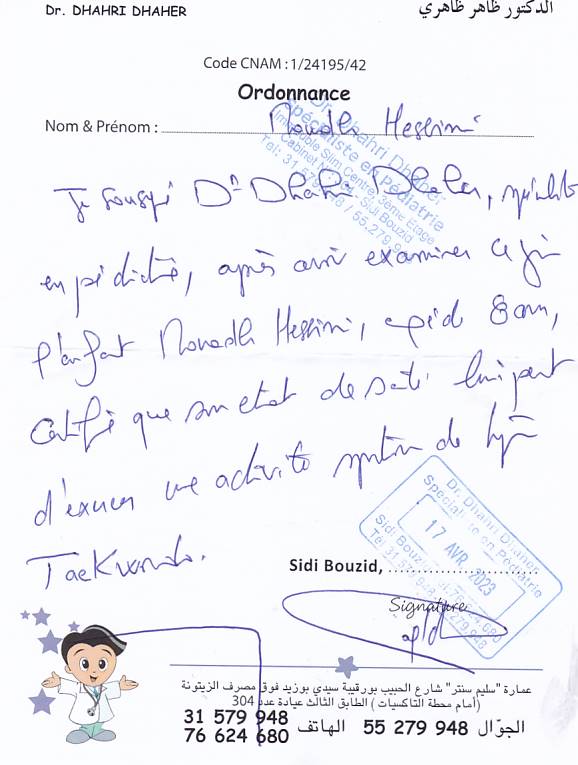 Dr. DHAHRI DHAHER
الدكتور ظاهر ظاهري
Code CNAM : 1/24195/42
Ordonnance
Nom & Prénom : Mouadh Hessimi
Dr. Dhahri Dhaher
Spécialiste en Pédiatrie
Immeuble Slim Centre 3ème Etage
Cabinet Sidi Bouzid
Tél: 31 579 948 / 55.279.948
Je soussigné Dr Dhahri Dhaher, spécialiste
en pédiatrie, après avoir examiner ce jour
l'enfant Mouadh Hessimi, agé de 8 ans,
certifie que son etat de santé lui permet
d'exercer une activité sportive de type
Taekwondo.
Dr. Dhahri Dhaher
Spécialiste en Pédiatrie
17 AVR. 2023
Sidi Bouzid
Sidi Bouzid,
Signature
عمارة "سليم سنتر" شارع الحبيب بورقيبة سيدي بوزيد فوق مصرف الزيتونة
(أمام محطة التاكسيات) الطابق الثالث عيادة عدد 304
الجوّال 948 279 55 الهاتف 31 579 948
76 624 680